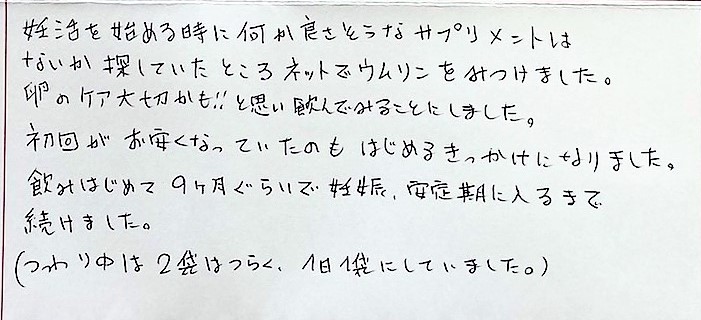 妊活を始める時に何か良さそうなサプリメントは
ないか探していたところネットでウムリンをみつけました。
卵のケア大切かも!!と思い飲んでみることにしました。
初回がお安くなっていたのもはじめるきっかけになりました。
飲みはじめて9ヶ月ぐらいで妊娠、安定期に入るまで
続けました。
(つわり中は2袋はつらく、1日1袋にしていました。)